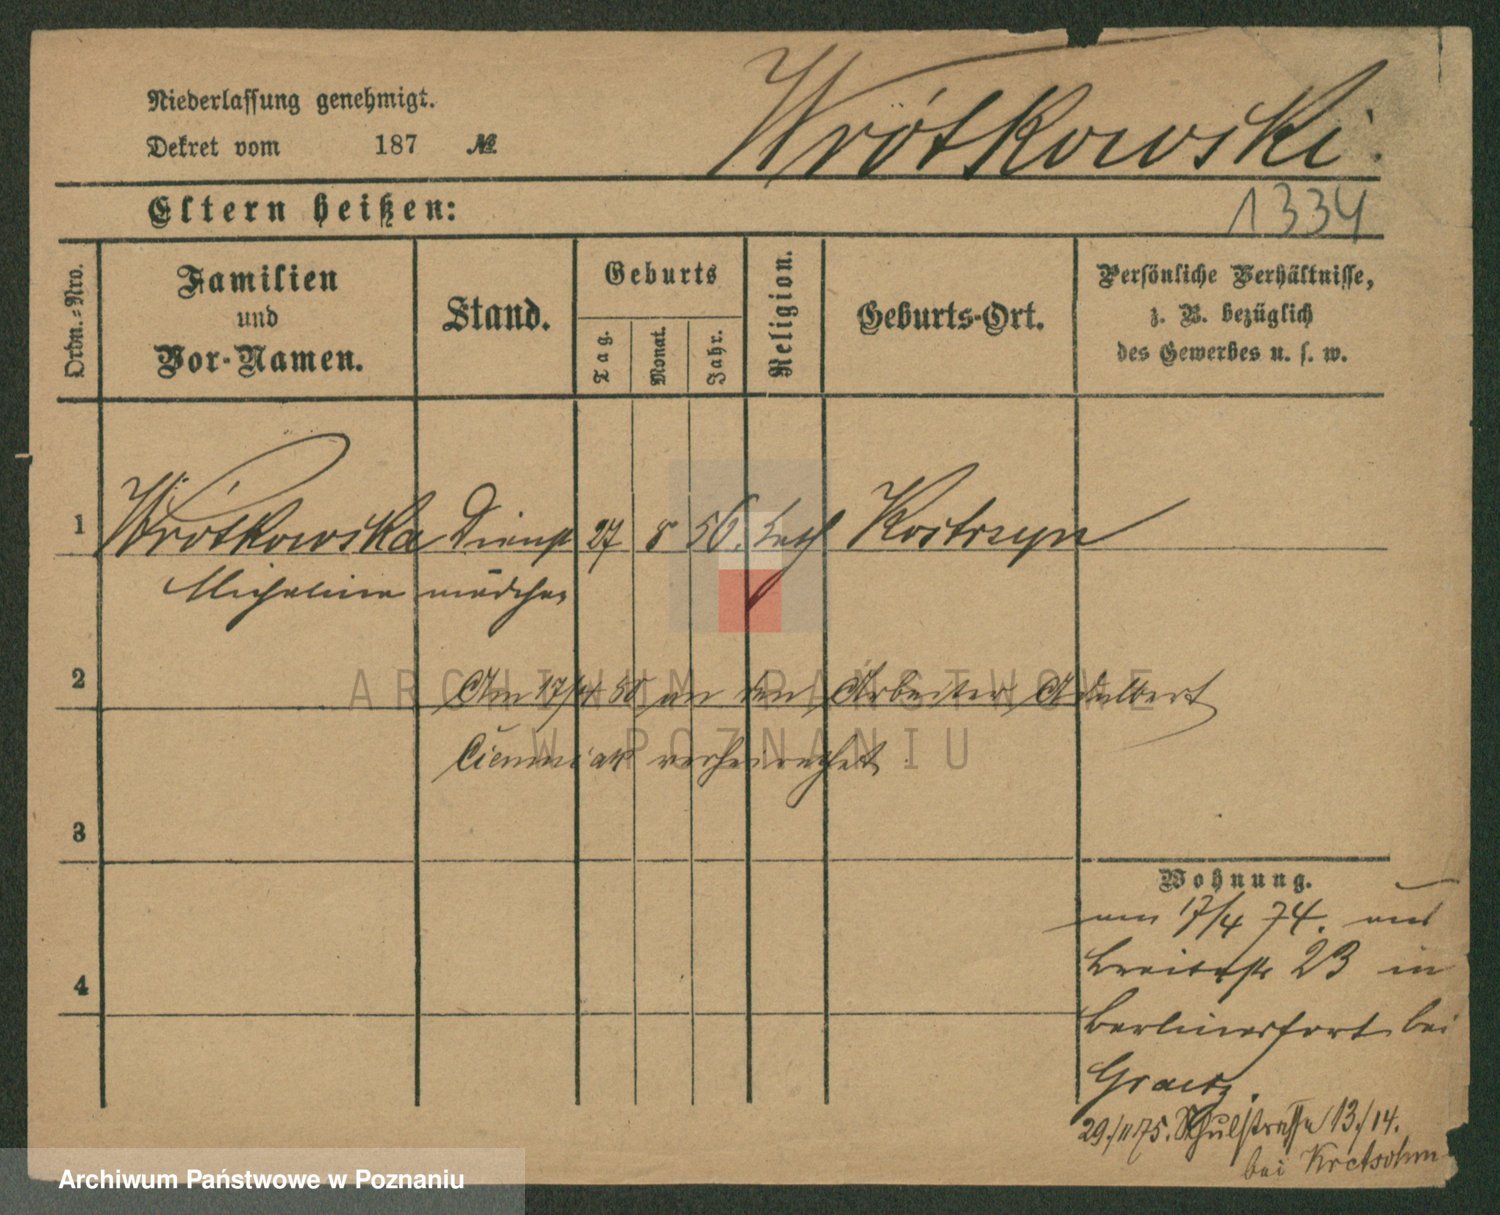 Niederlassung genehmigt.
Dekret vom 187 №
Wrótkowski.
Eltern heißen:
1334
Ordn.-Nro.
Familien
und
Vor-Namen.
Stand.
Geburts
Tag.
Monat.
Jahr.
Religion.
Geburts-Ort.
Persönliche Verhältnisse,
z. B. bezüglich
des Gewerbes u. s. w.
1 Wrótkowska Dienst 27 8 56. kath Kostrzyn
Michalina mädchen
2 Am 17/4 80 an den Arbeiter Adalbert
verheirathet
3
Wohnung.
am 17/4 74. aus
Breitestr 23 in
4
Berlinerfort bei
Graetz.
29./11 75. Schulstrasse 13./14.
bei
ARCHIWUM PAŃSTWOWE
W POZNANIU
Archiwum Państwowe w Poznaniu